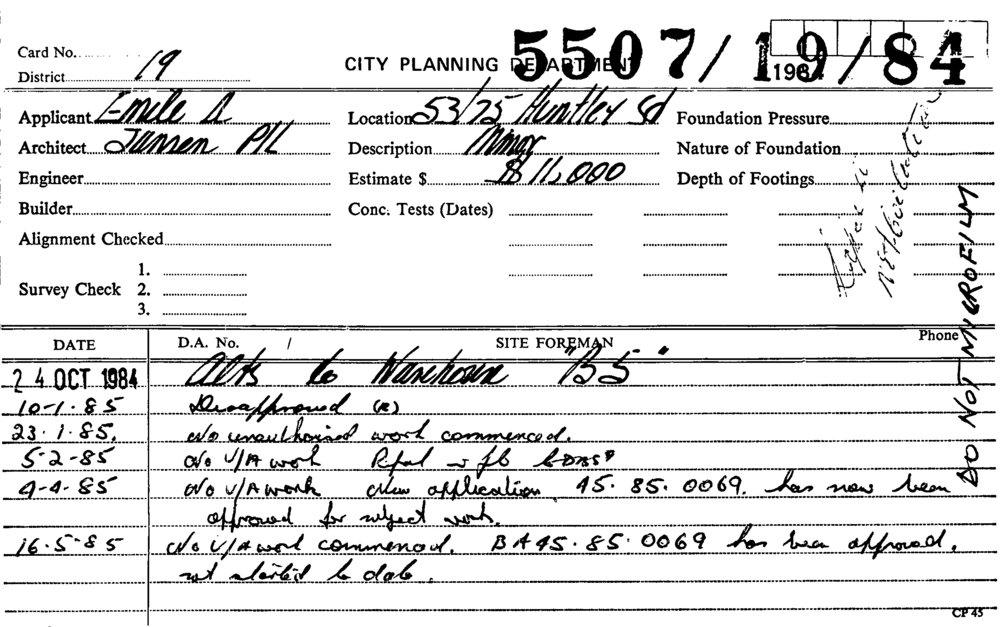 5507/19/84
Card No.
District 19
CITY PLANNING DEPARTMENT 198
Applicant Emile A Location 53/75 Huntley Sd Foundation Pressure
Architect Jansen P/L Description Minor Nature of Foundation
Engineer Estimate $ $ 11,000 Depth of Footings
Builder Conc. Tests (Dates)
Alignment Checked
1.
Survey Check 2.
3.
DO NOT MICROFILM
DATE D.A. No. SITE FOREMAN Phone
24 OCT 1984 Alts to Warehouse "B5"
10-1.85 Disapproved (R)
23.1.85. No unauthorised work commenced.
5-2-85 No U/A work
4-4-85 No U/A work New application 45.85.0069. has now been
approved for subject work.
16.5-85 No U/A work commenced. BA 45.85.0069 has been approved.
not started to date.
CP 45